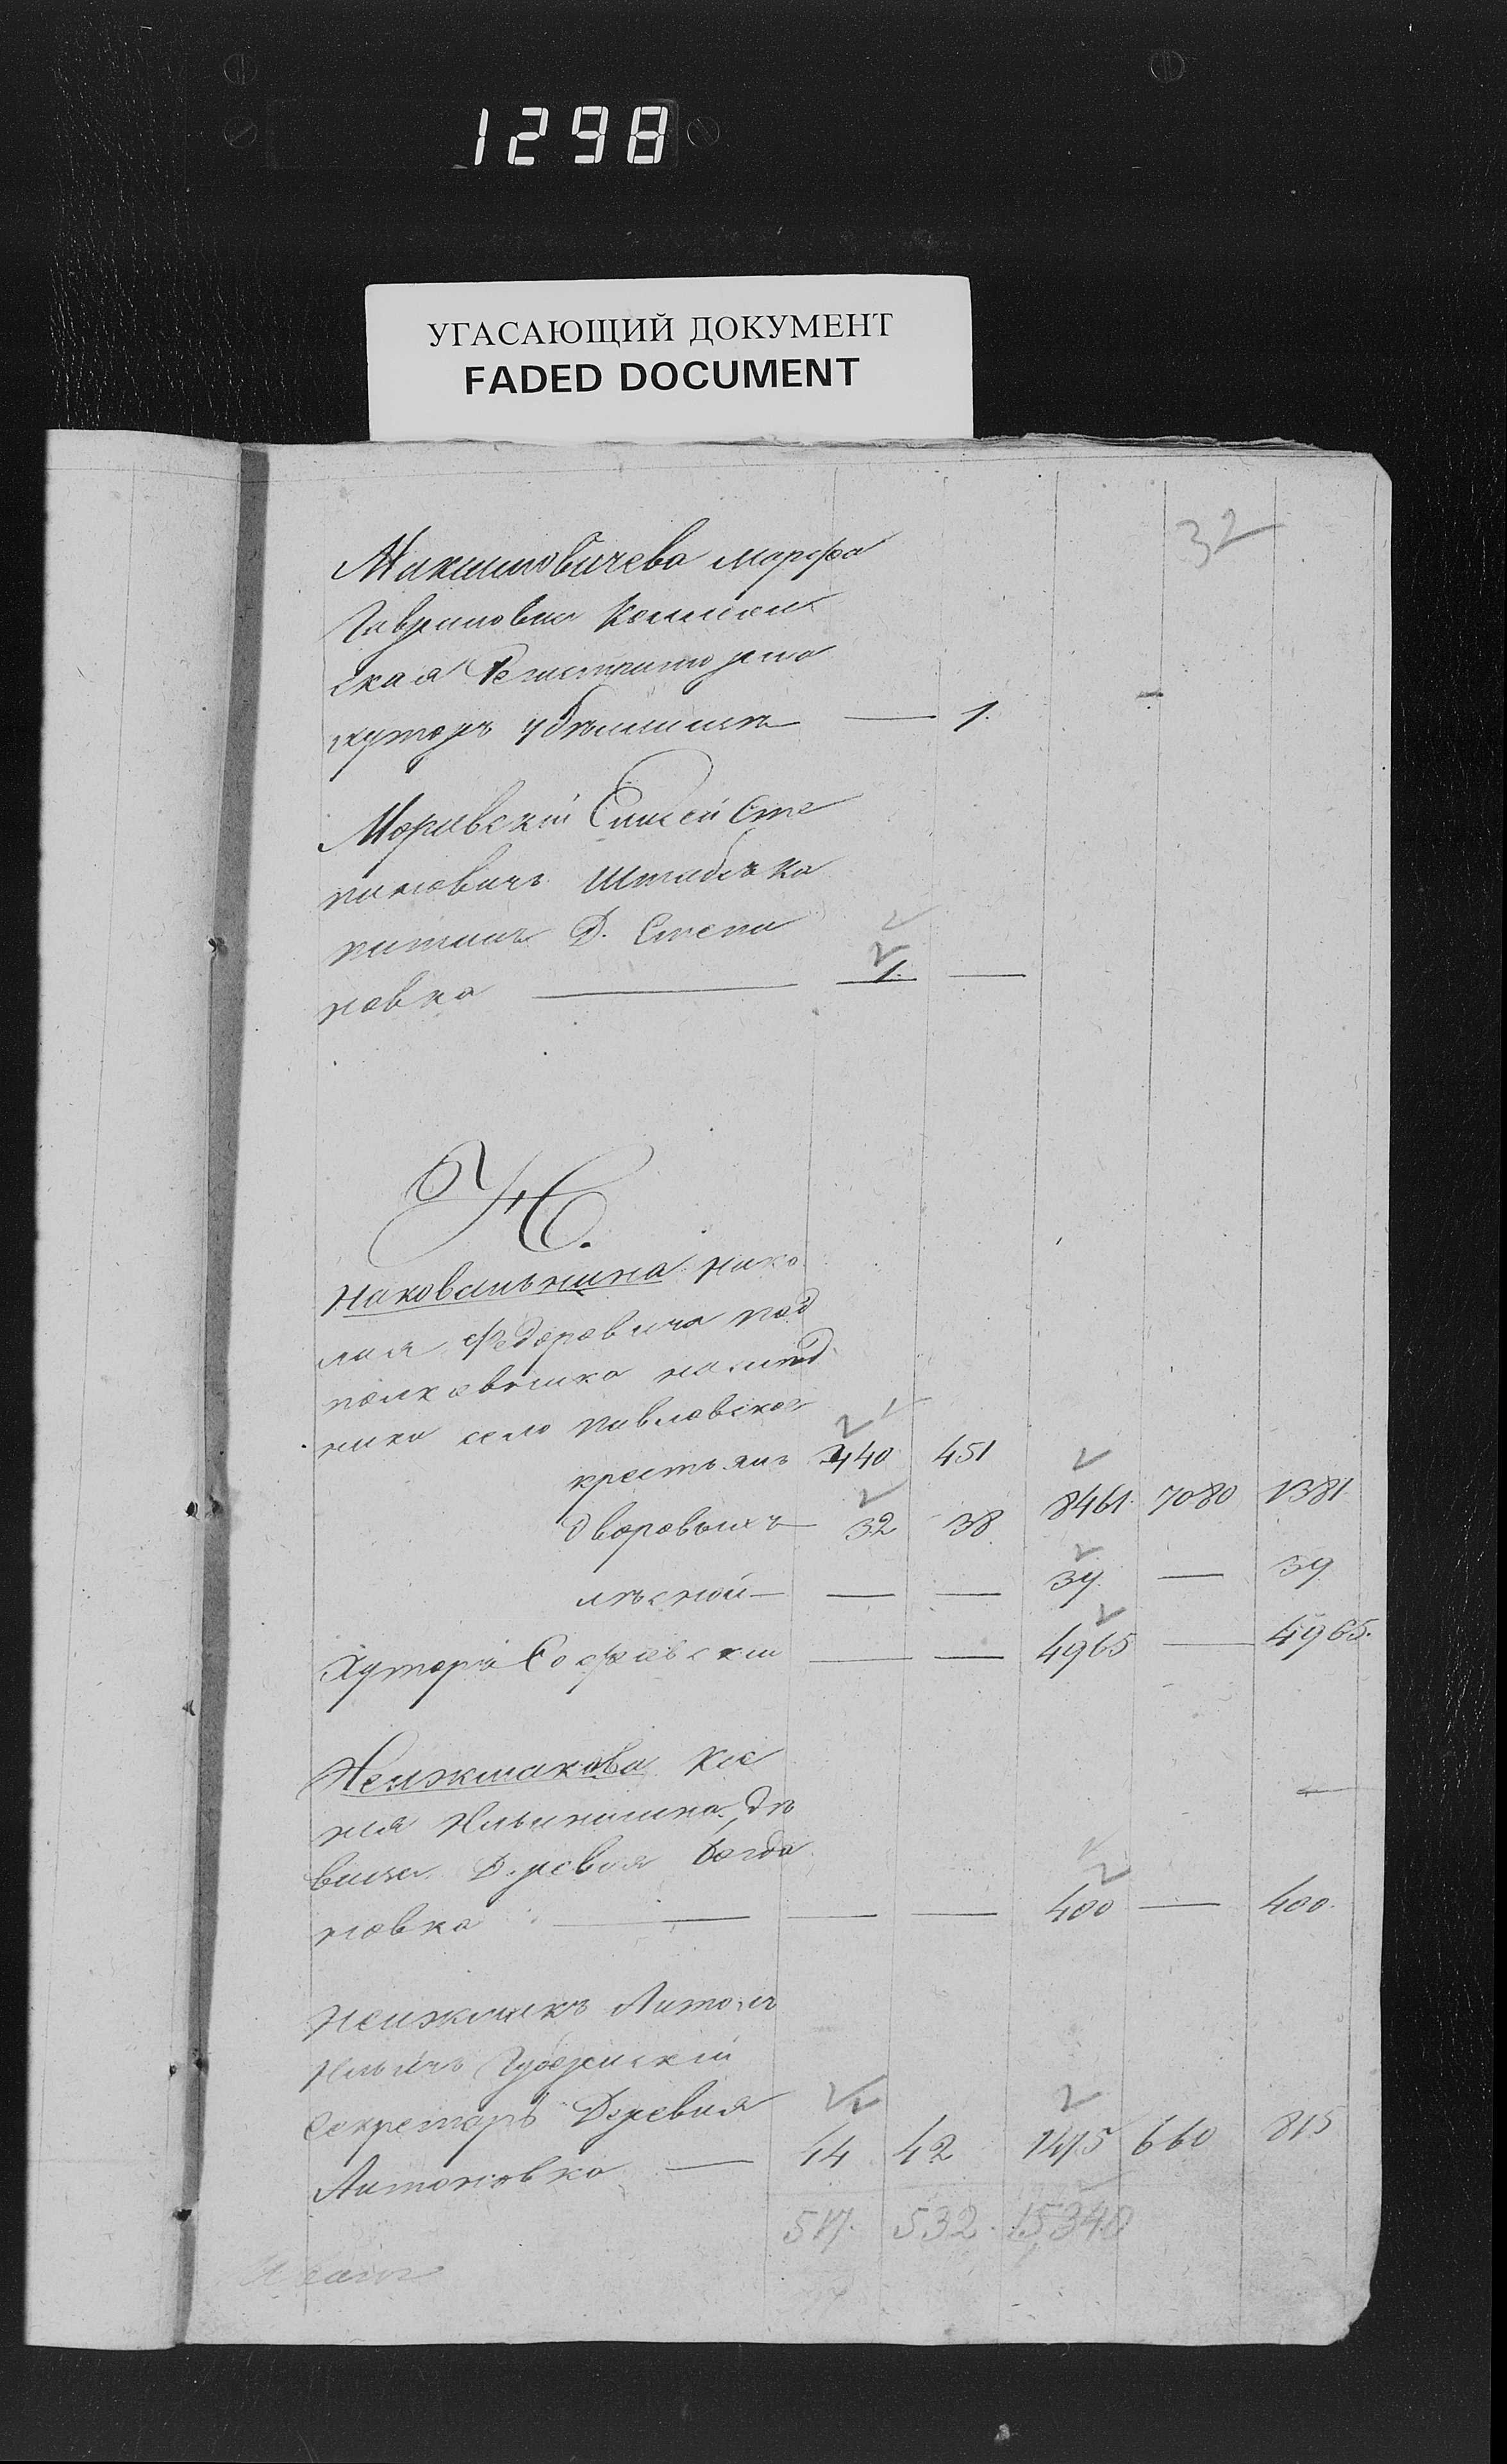 1298
УГАСАЮЩИЙ ДОКУМЕНТ
FADED DOCUMENT
32
Максимовичева Марфа
Гавриловна Коллеж
ская Регистраторша
хуторъ — 1.
Моравскій Сте
пановичъ Штабсъ Ка
питанъ Д. Степа
новка — 1. —
Н.
Наковальнина Нико
лая Федоровича под
полковника наслѣд
ника село Павловское
крестьянъ 440 451
дворовыхъ — 32 38 8461 7080 1381
лѣсной — — — 39 — 39
Хуторъ Софіевскій — — 4965 — 4965.
Неижмакова Ксе
нія Ильинишна дѣ
вица Деревня Богда
новка — — — 400 — 400.
Неижмакъ Антонъ
Ильичъ Губернскій
Секретарь Деревня
Антоновка — 44 42 1475 660 815
517. 532. 15,340